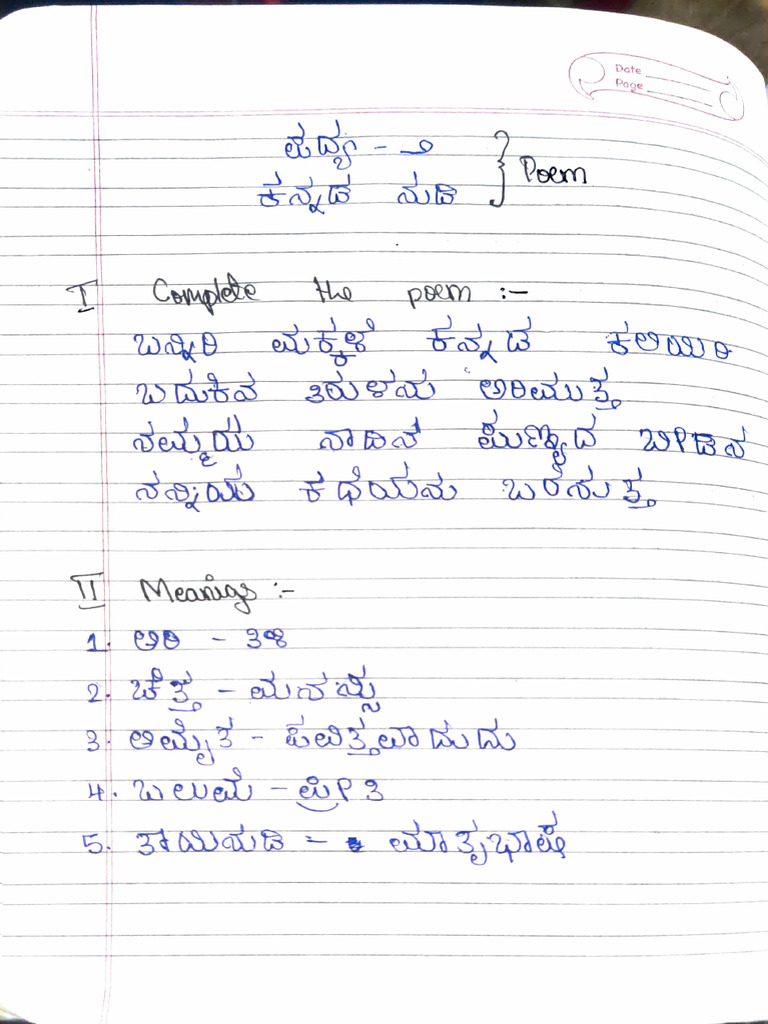 Date
Page
ಪದ್ಯ - ೨
} Poem
ಕನ್ನಡ ನುಡಿ
I Complete the poem :-
ಬನ್ನಿರಿ ಮಕ್ಕಳೆ ಕನ್ನಡ ಕಲಿಯಿರಿ
ಬದುಕಿನ ತಿರುಳನು ಅರಿಯುತ್ತ
ನಮ್ಮಯ ನಾಡಿನ ಪುಣ್ಯದ ಬೀಡಿನ
ನನ್ನಿಯ ಕಥೆಯನು ಬರೆಸುತ್ತ
II Meanigs :-
1. ಅರಿ - ತಿಳಿ
2. ಚಿತ್ತ - ಮನಸ್ಸು
3. ಅಮೃತ - ಪವಿತ್ತವಾದುದು
4. ಒಲುಮೆ - ಪ್ರೀತಿ
5. ತಾಯಿನುಡಿ - ಮಾತೃಭಾಷೆ